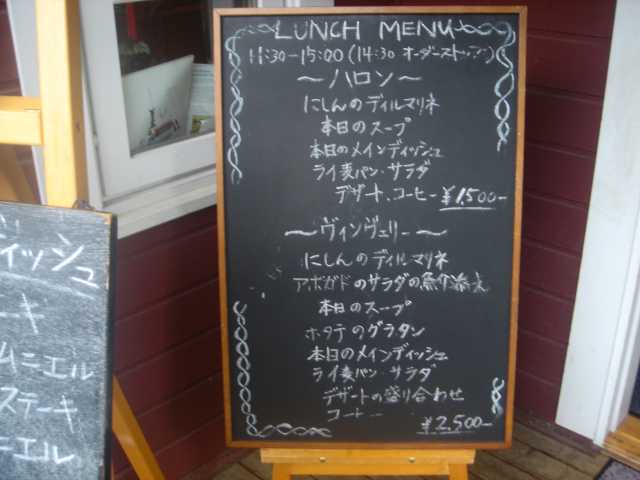 LUNCH MENU
11:30-15:00 (14:30 オーダーストップ)
〜ハロン〜
にしんのディルマリネ
本日のスープ
本日のメインディッシュ
ライ麦パン・サラダ
デザート、コーヒー ¥1,500-
〜ヴィンヴェリー〜
にしんのディルマリネ
アボガドのサラダの魚介添え
本日のスープ
ホタテのグラタン
本日のメインディッシュ
ライ麦パン・サラダ
デザートの盛り合わせ
コーヒー
¥2,500-
ディッシュ
キ
ムニエル
ステーキ
ニエル